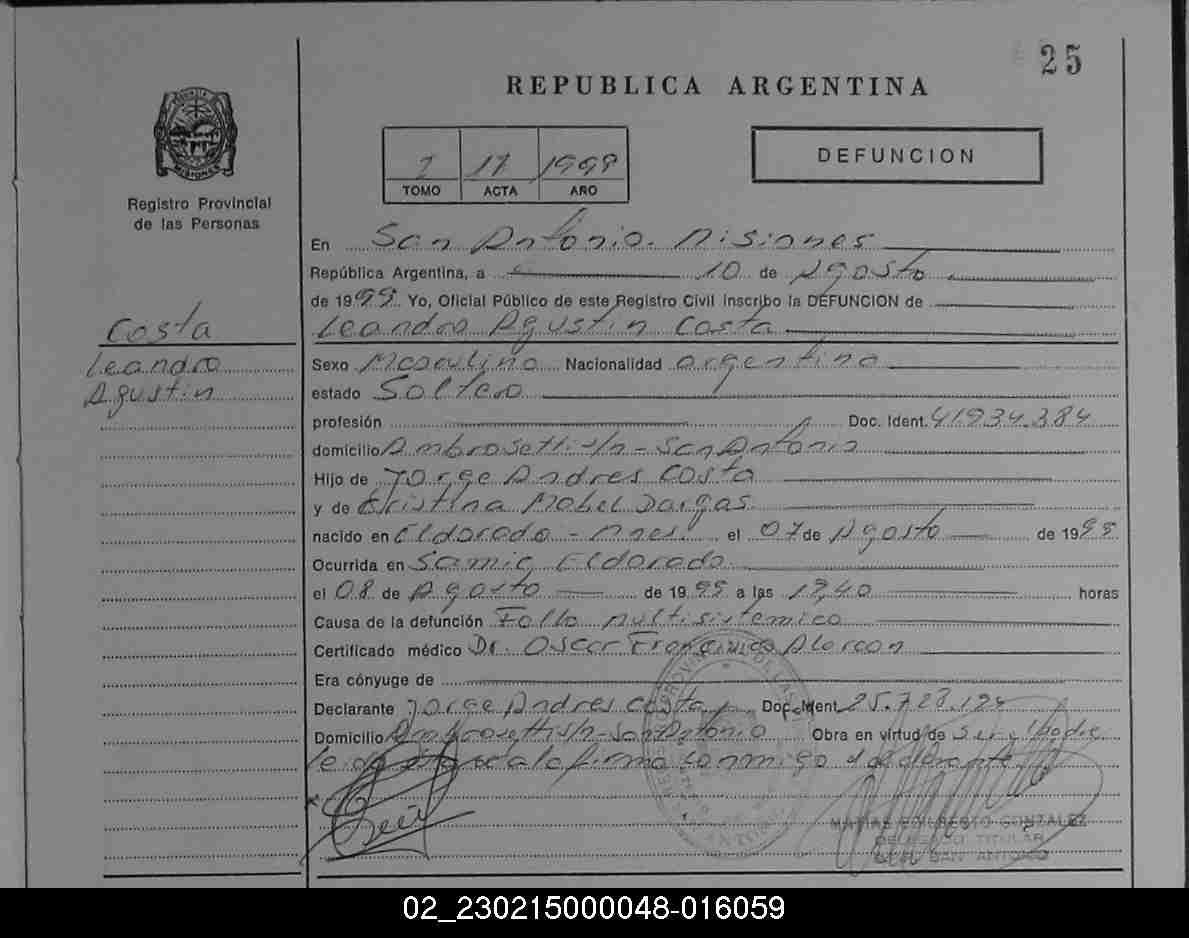 25
REPUBLICA ARGENTINA
PROVINCIA DE MISIONES
Registro Provincial
de las Personas
1 11 1999
TOMO ACTA AÑO
DEFUNCION
En San Antonio. Misiones
República Argentina, a 10 de Agosto
de 1999 Yo, Oficial Público de este Registro Civil inscribo la DEFUNCION de
Costa
Leandro Agustin Costa
Leandro
Agustin
Sexo Masculino Nacionalidad argentina
estado Soltero
profesión Doc. Ident. 41.934.384
domicilio Ambrosetti s/n - San Antonio
Hijo de Jorge Andres Costa
y de Cristina Mabel Vargas
nacido en Eldorado - Mnes. el 07 de Agosto de 1999
Ocurrida en Samic Eldorado
el 08 de Agosto de 1999 a las 19,40 horas
Causa de la defunción Fallo multisistemico
Certificado médico Dr. Oscar Francisco Alarcon
Era cónyuge de
Declarante Jorge Andres Costa Doc. Ident. 25.728.194
Domicilio Ambrosetti s/n - San Antonio Obra en virtud de ser el padre
Leida el acta la firma conmigo el declarante
GONZALEZ
DELEGADO TITULAR
SAN ANTONIO
02_230215000048-016059